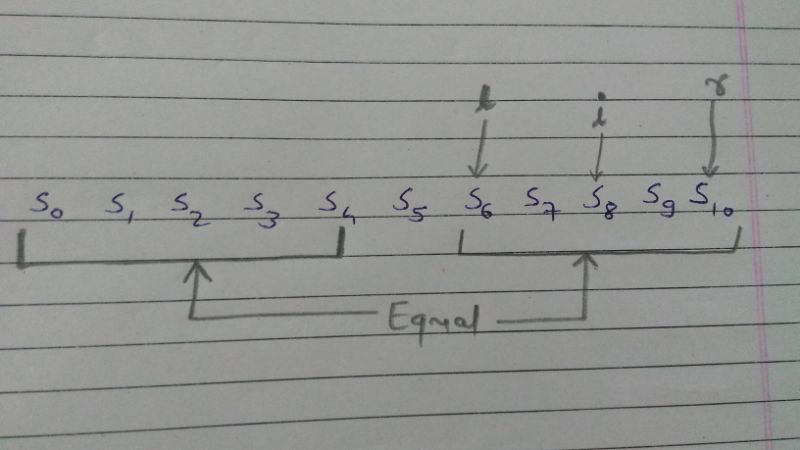 l i r
S₀ S₁ S₂ S₃ S₄ S₅ S₆ S₇ S₈ S₉ S₁₀
Equal